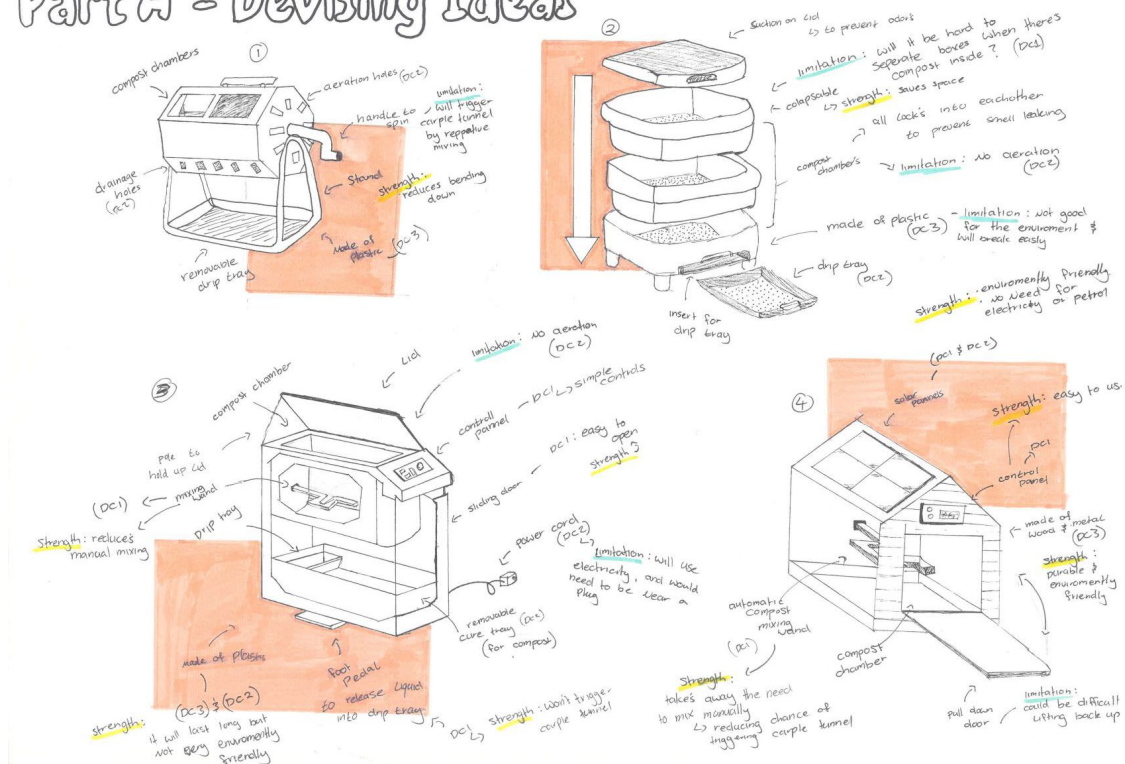 Part A - Devising Ideas
①
compost chambers
aeration holes (DC2)
handle to
spin
limitation:
will trigger
carple tunnel
by reppative
mixing
drainage
holes
(DC2)
Stand
strength:
reduces bending
down
Made of
plastic (DC3)
removable
drip tray
②
Suction on Lid
↳ to prevent odors
limitation: will it be hard to
seperate boxes when there's
compost inside? (DC1)
colapsable
↳ strength: saves space
all lock's into eachother
to prevent smell leaking
compost
chamber's
limitation: No aeration
(DC2)
made of plastic
(DC3)
- limitation: Not good
for the enviroment &
will break easily
drip tray
(DC2)
insert for
drip tray
strength: enviromently friendly
. No Need for
electricity or petrol
③
compost chamber
Lid
limitation: No aeration
(DC2)
controll
pannel - DC1 ↳ simple
controls
pole to
hold up Lid
DC1: easy to
open
strength
sliding door
(DC1)
mixing
wand
Strength: reduce's
manual mixing
Drip tray
power cord
(DC2)
↳ limitation: will use
electricity, and would
need to be near a
plug
removable
cure tray (DC2)
(for compost)
made of Plastic
(DC3) & (DC2)
strength:
it will last long but
not very enviromently
friendly
foot
Pedal
to release Liquid
into drip tray
DC1 ↳ Strength: Won't trigger
carple tunnel
④
(DC1 & DC2)
solar pannels
strength: easy to us
DC1
control
panel
made of
wood & metal
(DC3)
strength:
Durable &
enviromently
friendly
automatic
compost
mixing
wand
(DC1)
compost
chamber
Strength:
take's away the need
to mix manually
↳ reducing chance of
triggering carple tunnel
Pull down
door
limitation:
could be difficult
lifting back up